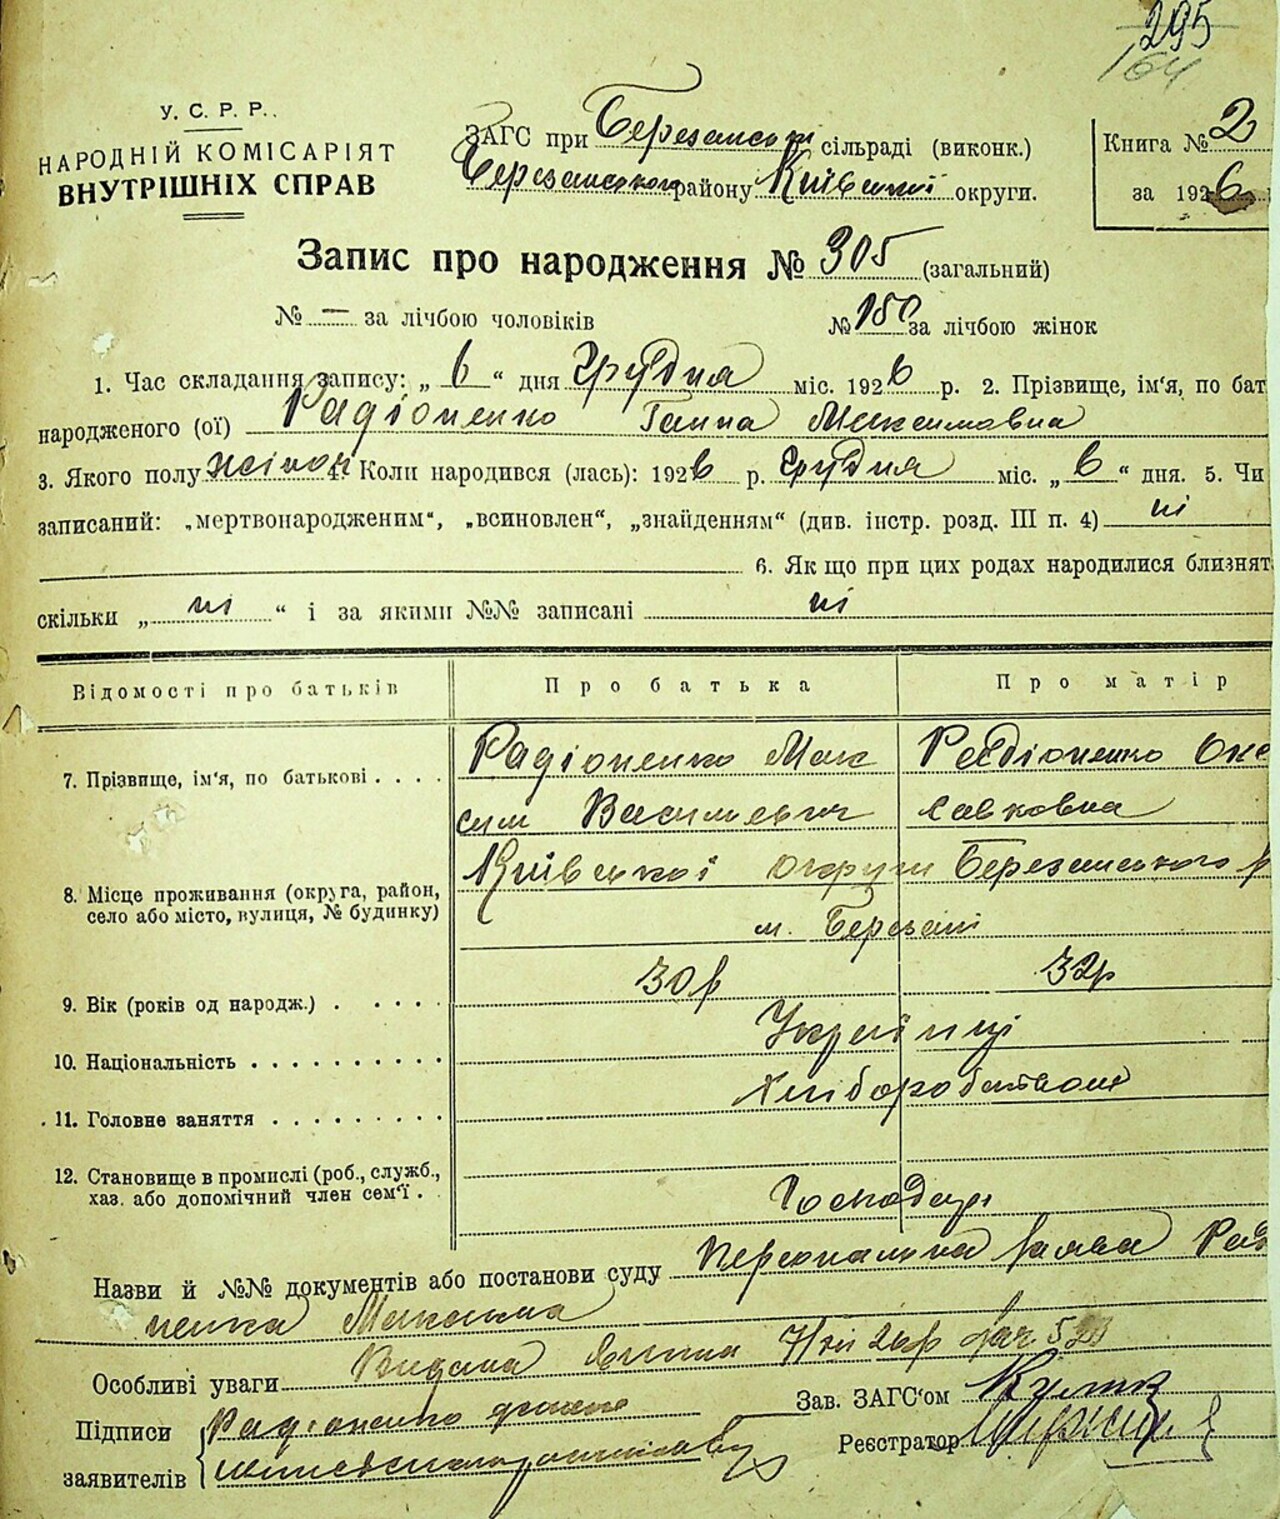 295
164
У. С. Р. Р.
НАРОДНІЙ КОМІСАРІЯТ
ВНУТРІШНІХ СПРАВ
ЗАГС при Березанськ сільраді (виконк.)
Березанського району Київської округи.
Книга № 2
за 1926
Запис про народження № 305 (загальний)
№ — за лічбою чоловіків № 150 за лічбою жінок
1. Час складання запису: „ 6 “ дня Грудня міс. 1926 р. 2. Прізвище, ім‘я, по бат
народженого (ої) Радіоненко Ганна Максимовна
3. Якого полу жіноч 4. Коли народився (лась): 1926 р. грудня міс. „ 6 “ дня. 5. Чи
записаний: „мертвонародженим“, „всиновлен“, „знайденням“ (див. інстр. розд. III п. 4) ні
6. Як що при цих родах народилися близнят
скільки „ ні “ і за якими №№ записані ні
Відомості про батьків Про батька Про матір
7. Прізвище, ім‘я, по батькові . . . . Радіоненко Мак Радіоненко Окс
сим Васильевич Савковна
8. Місце проживання (округа, район, село або місто, вулиця, № будинку) Київської округи Березанського р
м. Березані
9. Вік (років од народж.) . . . . . 30 р 32 р
10. Національність . . . . . . . . . . Українці
11. Головне заняття . . . . . . . . . Хліборобством
12. Становище в промислі (роб., служб.,
хаз. або допомічний член сем‘ї . Господарі
Назви й №№ документів або постанови суду Персональна заява Раді
ненка Максима
Особливі уваги Видана 7/XII 26 р
Зав. ЗАГС‘ом
Підписи Радіоненко
Реєстратор
заявителів